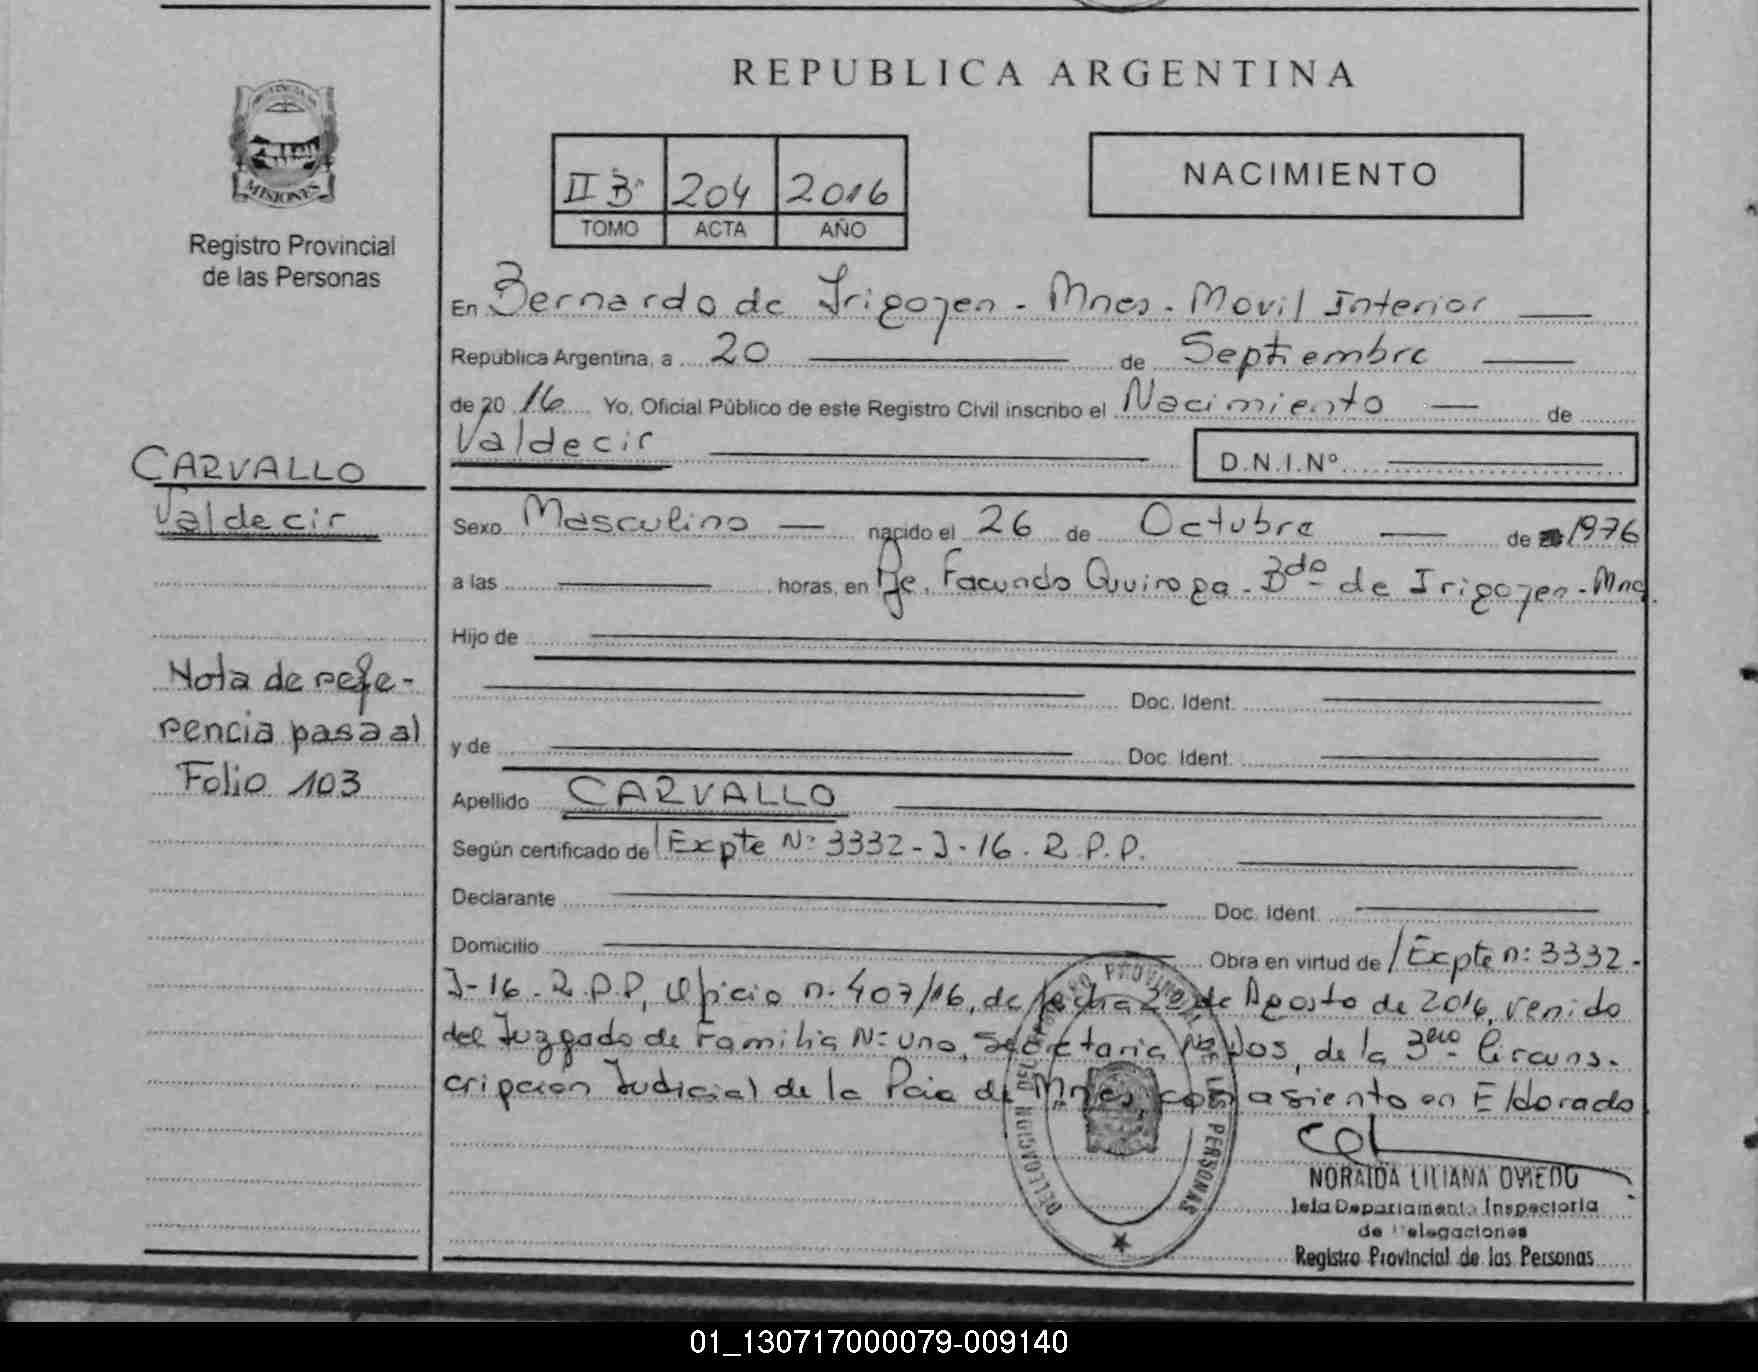 REPUBLICA ARGENTINA
PROVINCIA DE
MISIONES
Registro Provincial
de las Personas
IIBº 204 2016
TOMO ACTA AÑO
NACIMIENTO
En Bernardo de Irigoyen - Mnes - Movil Interior
República Argentina, a 20 de Septiembre
de 2016 Yo, Oficial Público de este Registro Civil inscribo el Nacimiento de
Valdecir D.N.I.Nº
CARVALLO
Valdecir
Sexo Masculino nacido el 26 de Octubre de 1976
a las horas, en Pje. Facundo Quiroga - Bdo de Irigoyen - Mnes.
Hijo de
Nota de refe-
rencia pasa al
Folio 103
Doc. Ident.
y de Doc. Ident.
Apellido CARVALLO
Según certificado de /Expte Nº 3332 - J - 16 . R.P.P.
Declarante Doc. Ident.
Domicilio Obra en virtud de /Expte nº 3332 -
J-16 - R.P.P, Oficio nº 407/16, de fecha de Agosto de 2016, venido
del Juzgado de Familia Nº uno, Secretaria Nº Dos, de la 3era Circuns-
cripcion Judicial de la Pcia de Mnes, con asiento en Eldorado
DELEGACION DEL REGISTRO PROVINCIAL DE LAS PERSONAS
NORAIDA LILIANA OVIEDO
Jefa Departamento Inspectoria
de Delegaciones
Registro Provincial de las Personas
01_130717000079-009140